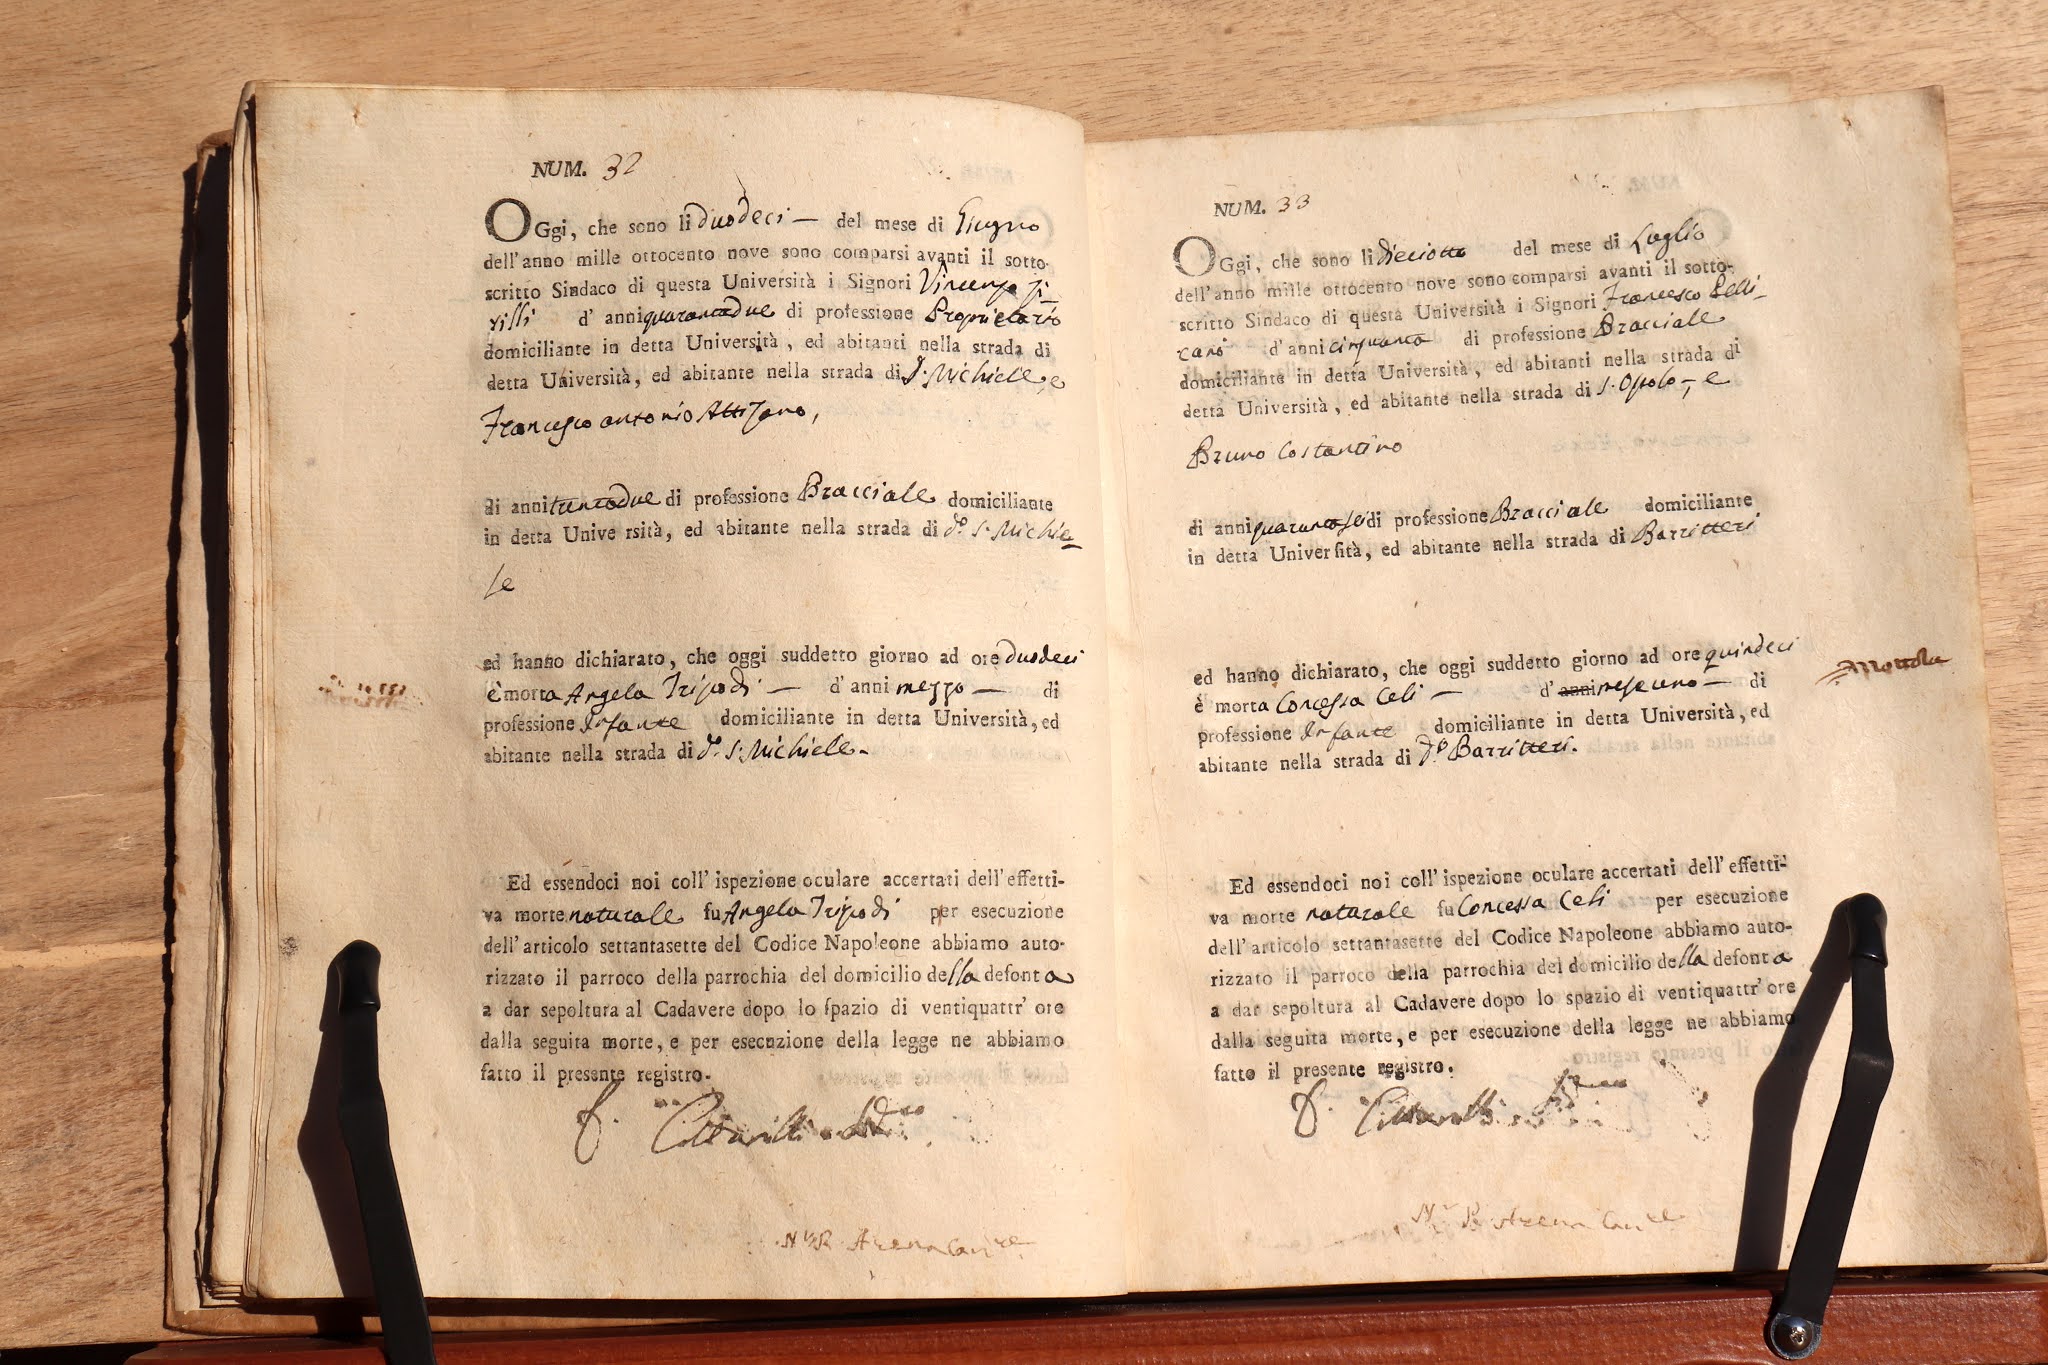 NUM. 32
OGgi, che sono li duodeci — del mese di Giugno
dell'anno mille ottocento nove sono comparsi avanti il sotto-
scritto Sindaco di questa Università i Signori Vincenzo
d' anni quarantadue di professione Proprietario
domiciliante in detta Università, ed abitanti nella strada di
detta Università, ed abitante nella strada di S. Michiele, e
Francesco antonio
di anni trentadue di professione Bracciale domiciliante
in detta Unive rsità, ed abitante nella strada di d.o S. Michie
le
ed hanno dichiarato, che oggi suddetto giorno ad ore duodeci
è morta Angela Tripodi — d' anni mezzo — di
professione Infante domiciliante in detta Università, ed
abitante nella strada di d.o S. Michiele.
Ed essendoci noi coll' ispezione oculare accertati dell' effetti-
va morte naturale fu Angela Tripodi per esecuzione
dell' articolo settantasette del Codice Napoleone abbiamo auto-
rizzato il parroco della parrochia del domicilio della defonta
a dar sepoltura al Cadavere dopo lo spazio di ventiquattr' ore
dalla seguita morte, e per esecuzione della legge ne abbiamo
fatto il presente registro.
Arena Canre
NUM. 33
OGgi, che sono li dieciotto del mese di Luglio
dell'anno mille ottocento nove sono comparsi avanti il sotto-
scritto Sindaco di questa Università i Signori Francesco Pelli-
canò d' anni cinquanta di professione Bracciale
domiciliante in detta Università, ed abitanti nella strada di
detta Università, ed abitante nella strada di S. —, e
Bruno Costantino
di anni quarantasei di professione Bracciale domiciliante
in detta Università, ed abitante nella strada di Barritteri
ed hanno dichiarato, che oggi suddetto giorno ad ore quindeci
è morta Concessa Celi — d' anni mese uno — di
professione Infante domiciliante in detta Università, ed
abitante nella strada di d.o Barritteri.
Mottola
Ed essendoci noi coll' ispezione oculare accertati dell' effetti-
va morte naturale fu Concessa Celi per esecuzione
dell' articolo settantasette del Codice Napoleone abbiamo auto-
rizzato il parroco della parrochia del domicilio della defonta
a dar sepoltura al Cadavere dopo lo spazio di ventiquattr' ore
dalla seguita morte, e per esecuzione della legge ne abbiamo
fatto il presente registro.
Arena Canre